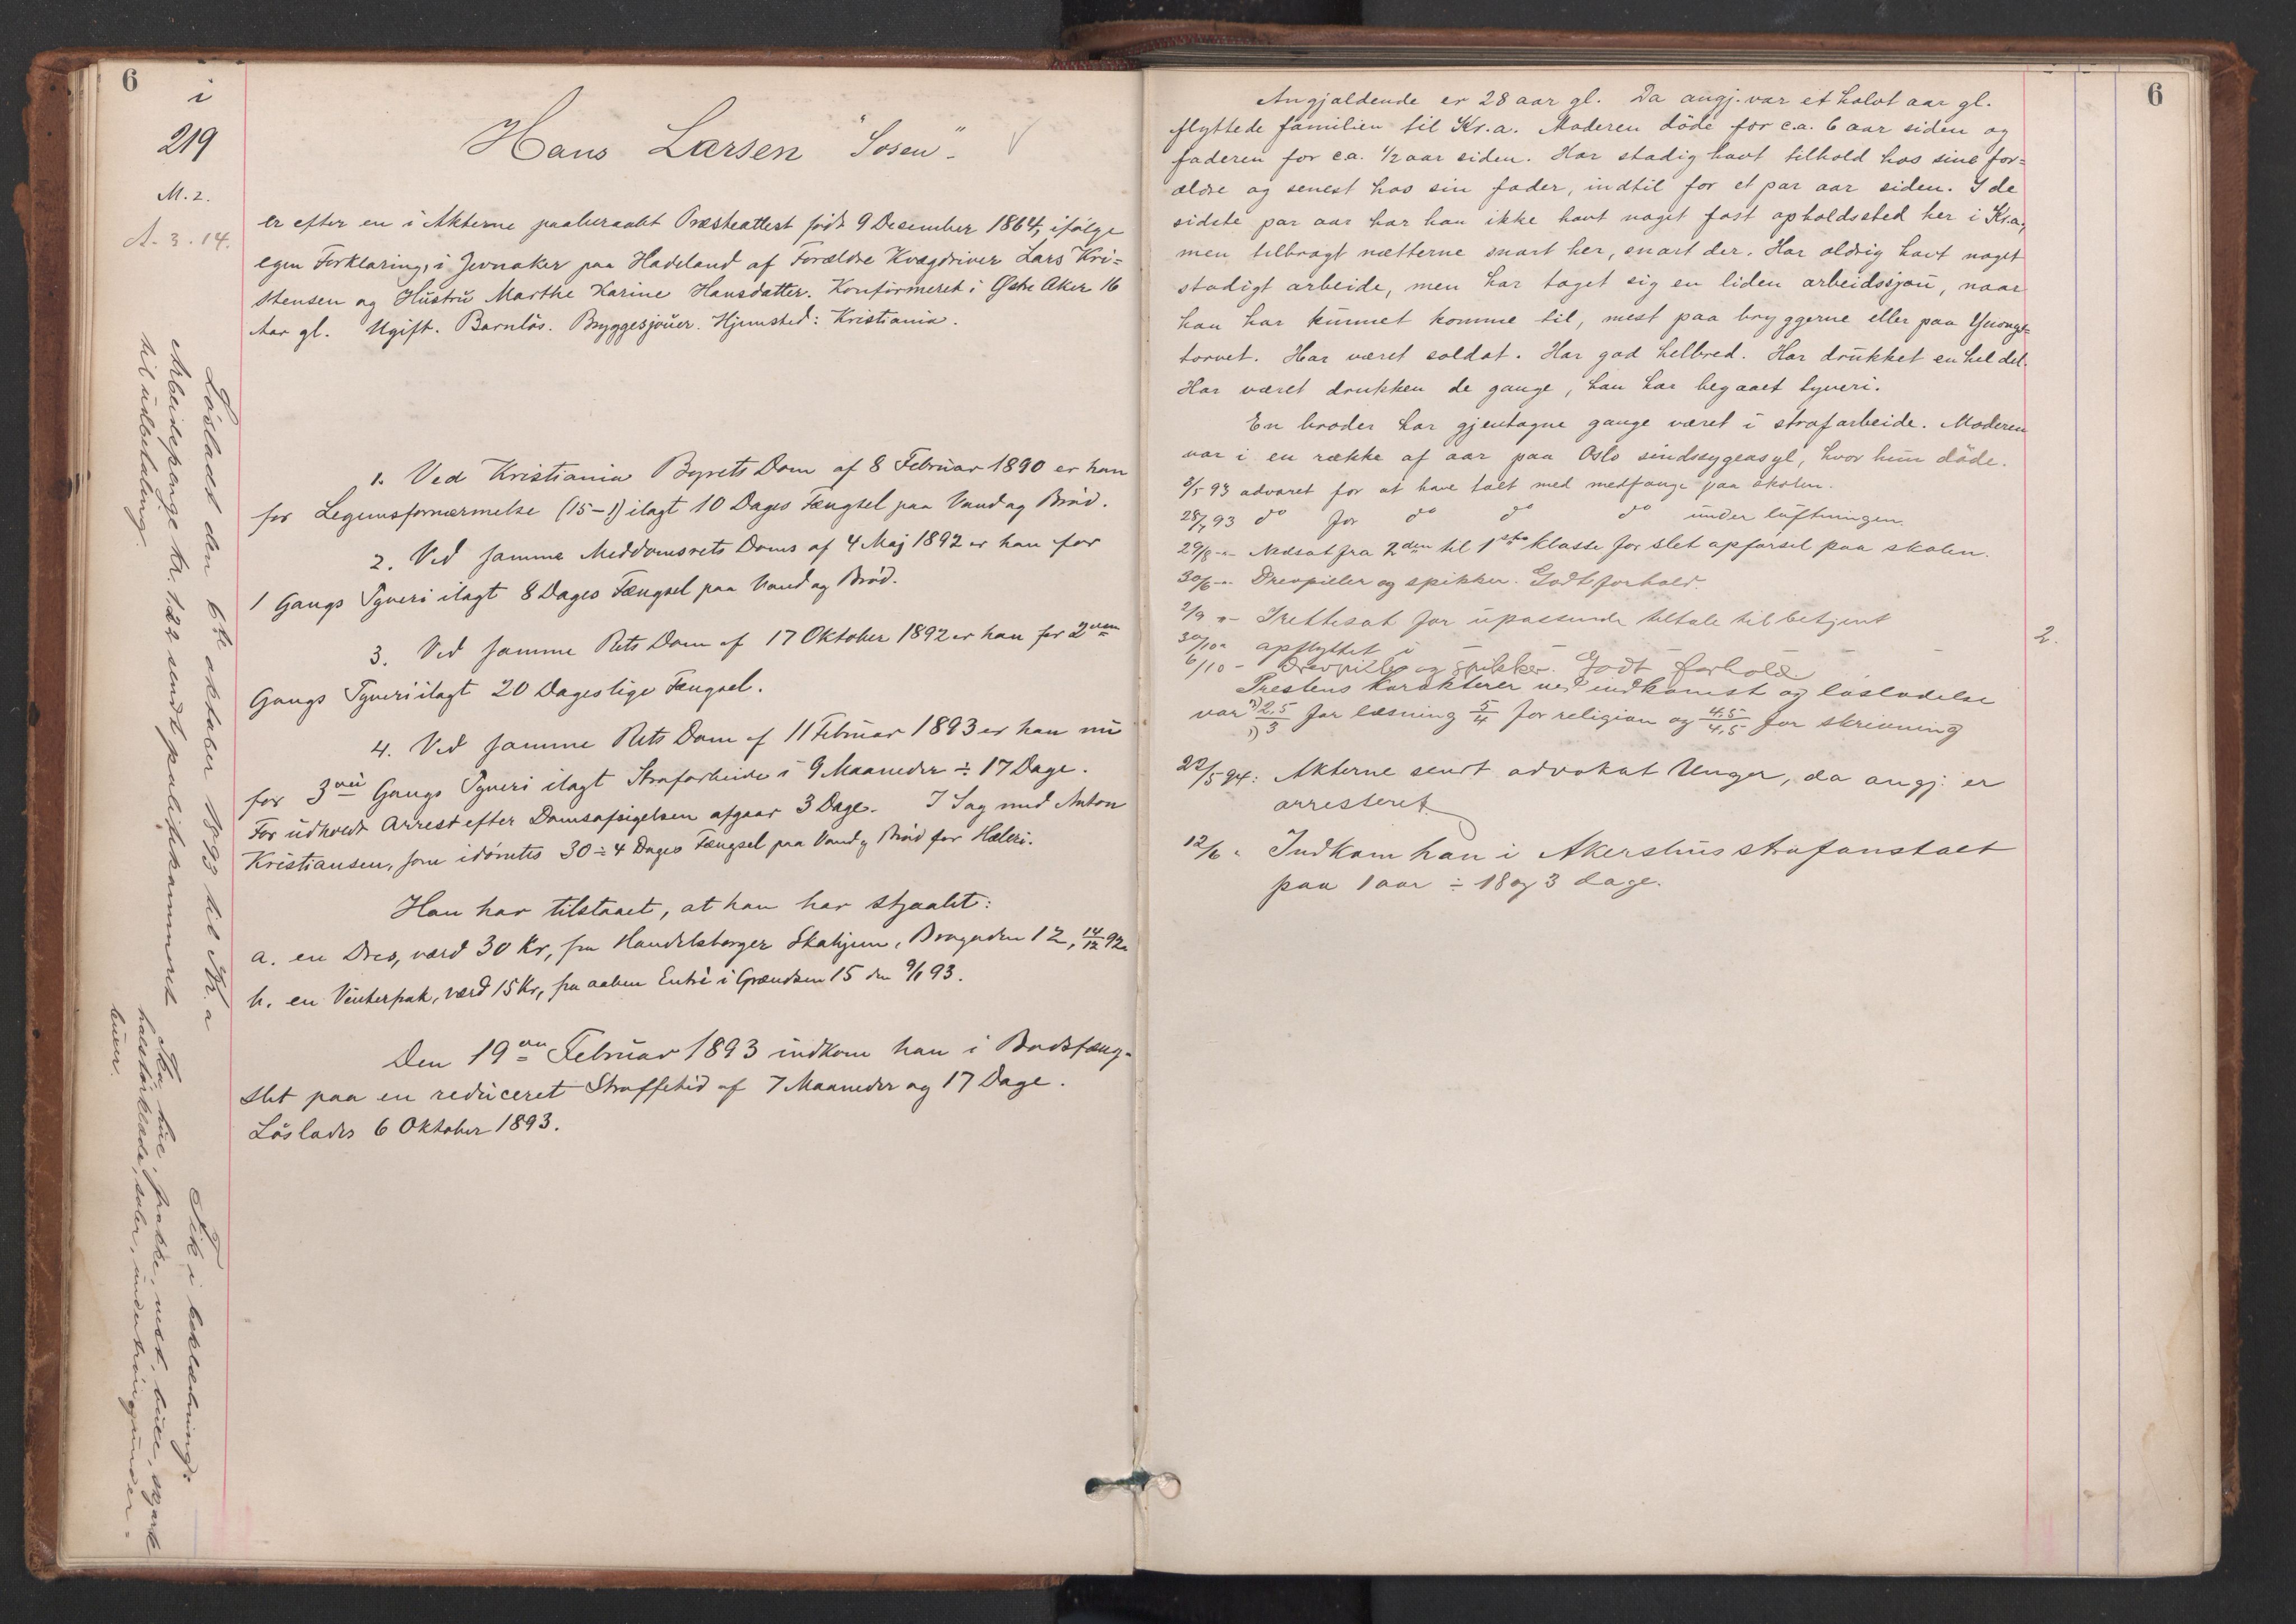 6
i
219
M. 2.
A. 3. 14.
Hans Larsen "Sosen".
er efter en i Akterne paaberaabt Præsteattest født 9 Desember 1864, ifølge
egen Forklaring, i Jevnaker paa Hadeland af Forældre Kvægdriver Lars Kri-
stensen og Hustru Marthe Karine Hansdatter. Konfirmeret i Østre Aker 16
Aar gl. Ugift. Barnløs. Bryggesjouer. Hjemsted: Kristiania.
1. Ved Kristiania Byrets Dom af 8 Februar 1890 er han
for Legemsfornærmelse (15-1) ilagt 10 Dages Fængsel paa Vand og Brød.
2. Ved samme Meddomsrets Doms af 4 Maj 1892 er han for
1 Gangs Tyveri ilagt 8 Dages Fængsel paa Vand og Brød.
3. Ved samme Rets Dom af 17 Oktober 1892 er han for 2den
Gangs Tyveri ilagt 20 Dages lige Fængsel.
4. Ved samme Rets Dom af 11 Februar 1893 er han nu
for 3die Gangs Tyveri ilagt Strafarbeide i 9 Maaneder ÷ 17 Dage.
For udholdt Arrest efter Domsafsigelsen afgaar 3 Dage. I Sag med Anton
Kristiansen, som idømtes 30 ÷ 4 Dages Fængsel paa Vand og Brød for Hæleri.
Han har tilstaaet, at han har stjaalet:
a. en Dres, værd 30 Kr, fra Handelsborger Skahjem, Brogaden 12, 14/12 92.
b. en Vinterfrak, værd 15 Kr, fra aaben Entré i Grændsen 15 den 9/1 93.
Den 19de Februar 1893 indkom han i Bodsfæng-
slet paa en reduceret Straffetid af 7 Maaneder og 17 Dage.
Löslades 6 Oktober 1893.
Lösladt den 6te oktober 1893 til Kr.a
Arbeidspenge kr. 1.22 sendt politikammeret
til udbetaling.
Fik i beklædning:
hue, frakke, vest, buxe, skjorte
halstørklæde, saler,
6
Angjældende er 28 aar gl. Da angj. var et halvt aar gl.
flyttede familien til Kr.a. Moderen döde for c.a. 6 aar siden og
faderen for c.a. 1/2 aar siden. Har stadig havt tilhold hos sine for-
ældre og senest hos sin fader, indtil for et par aar siden. I de
sidste par aar har han ikke havt noget fast opholdssted her i Kr.a,
men tilbragt nætterne snart her, snart der. Har aldrig havt noget
stadigt arbeide, men har taget sig en liden arbeidssjou, naar
han har kunnet komme til, mest paa bryggerne eller paa Youngs-
torvet. Har været soldat. Har god helbred. Har drukket en hel del.
Har været drukken de gange, han har begaaet tyveri.
En broder har gjentagne gange været i strafarbeide. Moderen
var i en række af aar paa Oslo sindssygeasyl, hvor hun döde.
9/5 93 advaret for at have talt med medfange paa skolen.
28/7 93 do for do do do under luftningen.
29/8 - Nedsat fra 2den til 1ste klasse for slet opførsel paa skolen.
30/6 - Drevpiller og spikker. Godt forhold.
2/9 - Irettesat for upassende tiltale til betjent
30/10 opflyttet i
2.
6/10 - Drevpiller og spikker. Godt forhold
Prestens karakterer ved indkomst og løsladelse
var 2,5/3 for læsning 5/4 for religion og 4,5/4,5 for skrivning
22/5 94: Akterne sendt advokat Unger, da angj. er
arresteret.
12/6 " Indkom han i Akershus strafanstalt
paa 1 aar ÷ 18 og 3 dage.